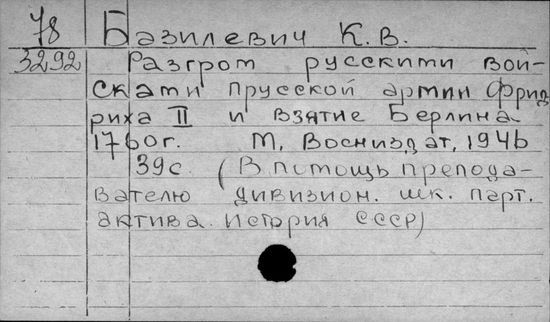 78 Базилевич К.В.
3292 Разгром русскими вой-
сками прусской армии Фрид
риха II и взятие Берлина
1760г. М, Воениздат, 1946
39с. (В помощь препода-
вателю дивизион. шк. парт.
актива. История СССР)